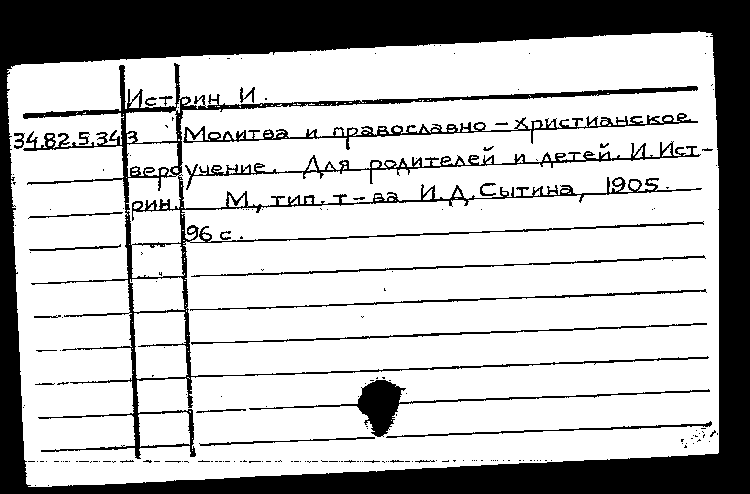 Истрин, И.
34.82.5.343 Молитва и православно-христианское
вероучение. Для родителей и детей. И. Ист-
рин. М., тип. т-ва И.Д. Сытина, 1905.
96 с.